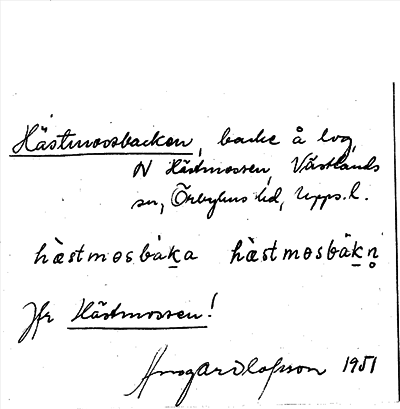 Hästmossbacken, backe å log,
N Hästmossen, Västlands
sn, Örbyhus hd, Upps. l.
hàstmosbàka hàstmosbàkn̥
Jfr Hästmossen!
Ansgar Olofsson 1951